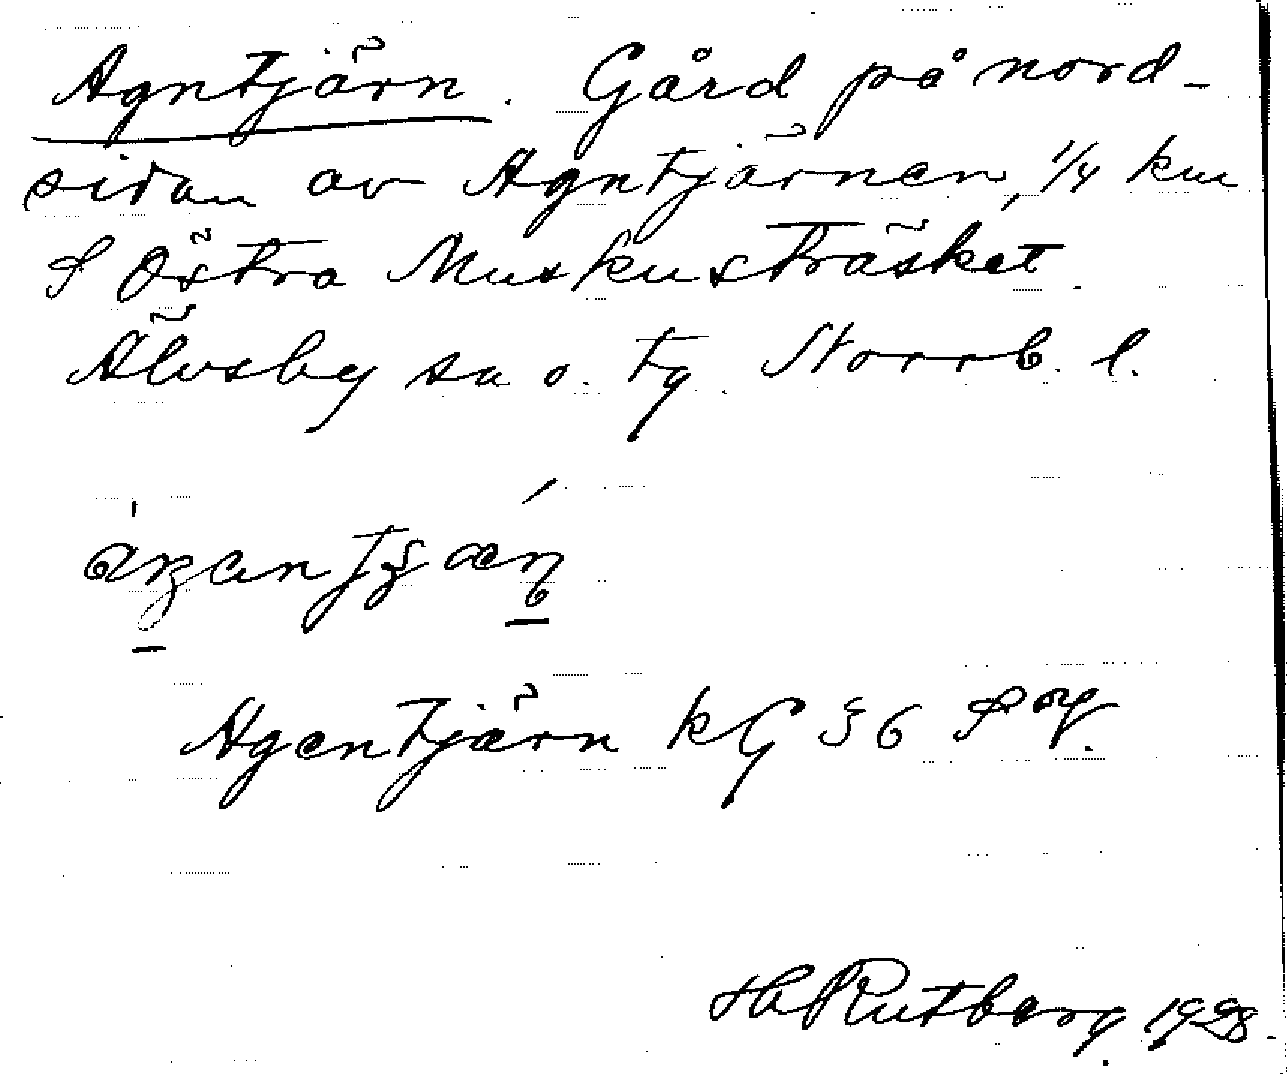 Agntjärn. Gård på nord-
sidan av Agntjärnen, 1/4 km
S Östra Muskusträsket
Älvsby sn o. tg. Norrb. l.
Agentjärn kG 36 S
H Rutberg 1928